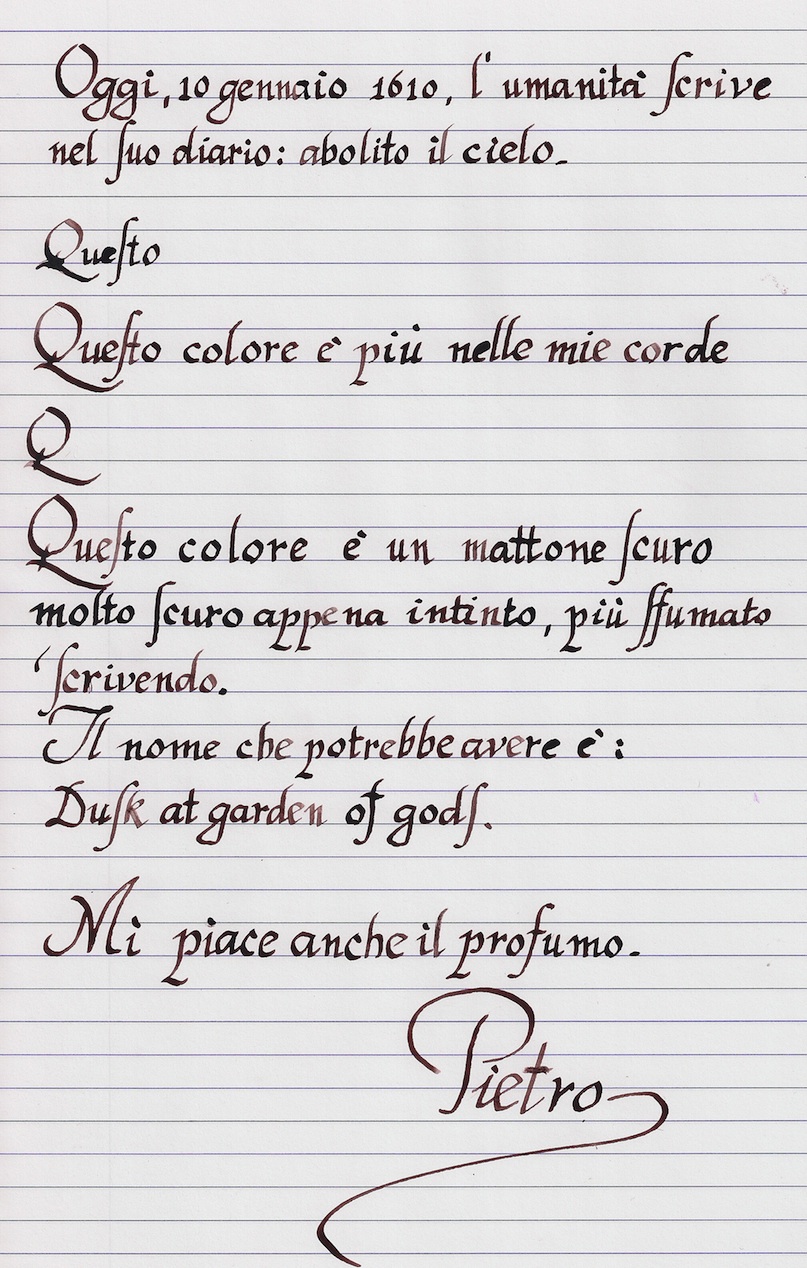 Oggi, 10 gennaio 1610, l'umanità ſcrive
nel ſuo diario: abolito il cielo.
Queſto
Queſto colore è più nelle mie corde
Q
Queſto colore è un mattone ſcuro
molto ſcuro appena intinto, più ſfumato
'ſcrivendo.
Il nome che potrebbe avere è:
Duſk at garden of godſ.
Mi piace anche il profumo.
Pietro